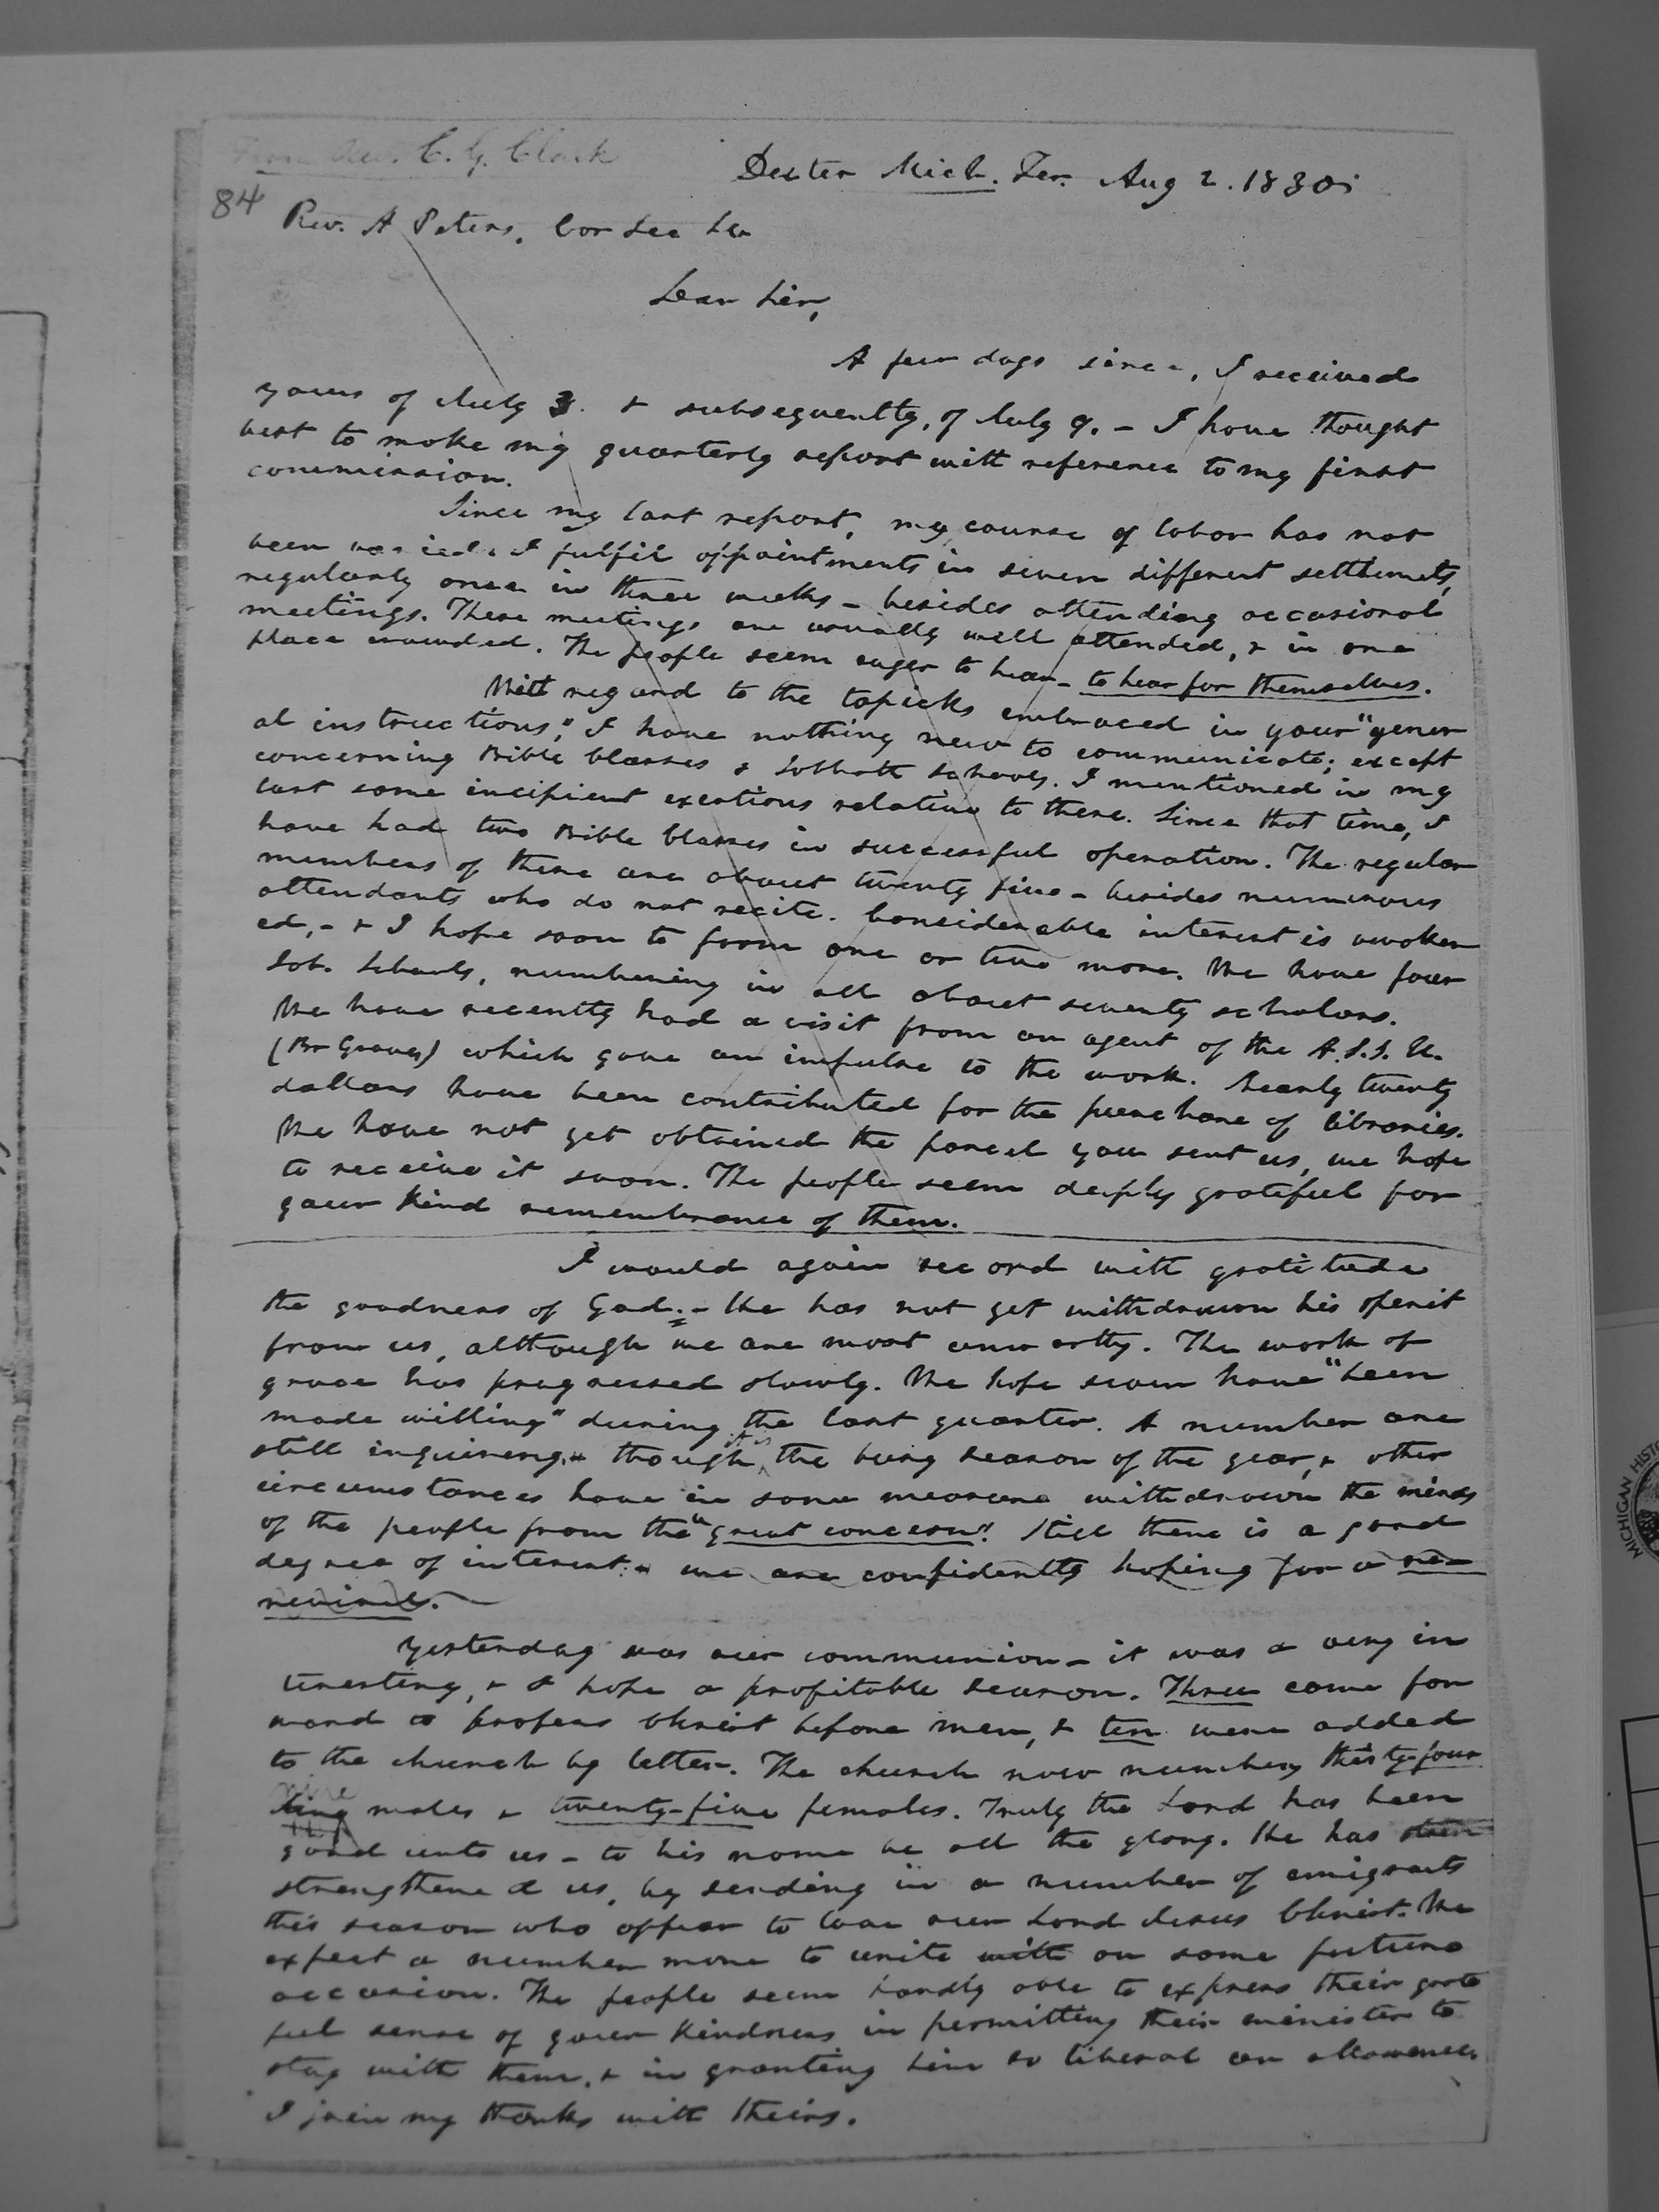 From Rev. C. G. Clark
Dexter Mich. Ter. Aug 2. 1830
84
Rev. A Peters, Cor Sec
Dear Sir,
A few days since, I received
yours of July 3. & subsequently, of July 9. - I have thought
best to make my quarterly report with reference to my first
commission.
Since my last report, my course of labor has not
been varied. I fulfil appointments in seven different settlements,
regularly once in three weeks - besides attending occasional
meetings. These meetings are usually well attended, & in one
place crowded. The people seem eager to hear - to hear for themselves.
With regard to the topicks embraced in your "gener
al instructions," I have nothing new to communicate; except
concerning Bible Classes & Sabbath Schools. I mentioned in my
last some incipient exertions relative to these. Since that time, I
have had two Bible Classes in successful operation. The regular
members of these are about twenty five - besides numerous
attendants who do not recite. Considerable interest is awaken
ed, - & I hope soon to form one or two more. We have four
Sab. Schools, numbering in all about seventy scholars.
We have recently had a visit from an agent of the A.S.S. U.
(Br Graves) which gave an impulse to the work. Nearly twenty
dollars have been contributed for the purchase of libraries.
We have not yet obtained the parcel you sent us, we hope
to receive it soon. The people seem deeply grateful for
your kind remembrance of them.
I would again record with gratitude
the goodness of God. - He has not yet withdrawn his spirit
from us, although we are most unworthy. The work of
grace has progressed slowly. We hope seven have "been
made willing" during the last quarter. A number are
still inquiring. - though it is the busy season of the year, & other
circumstances have in some measure withdrawn the minds
of the people from the "great concern". Still there is a good
degree of interest: - we are confidently hoping for a re-
revival. -
Yesterday was our communion - it was a very in
teresting, & I hope a profitable season. Three came for
ward to profess Christ before men, & ten were added
to the church by letter. The church now numbers thirty-four
nine males & twenty-five females. Truly the Lord has been
good unto us - to his name be all the glory. He has
strengthened us, by sending in a number of emigrants
this season who appear to love our Lord Jesus Christ. We
expect a number more to unite with on some future
occasion. The people seem hardly able to express their grate
ful sense of your kindness in permitting their minister to
stay with them, & in granting him so liberal an allowance.
I join my thanks with theirs.
MICHIGAN HIST